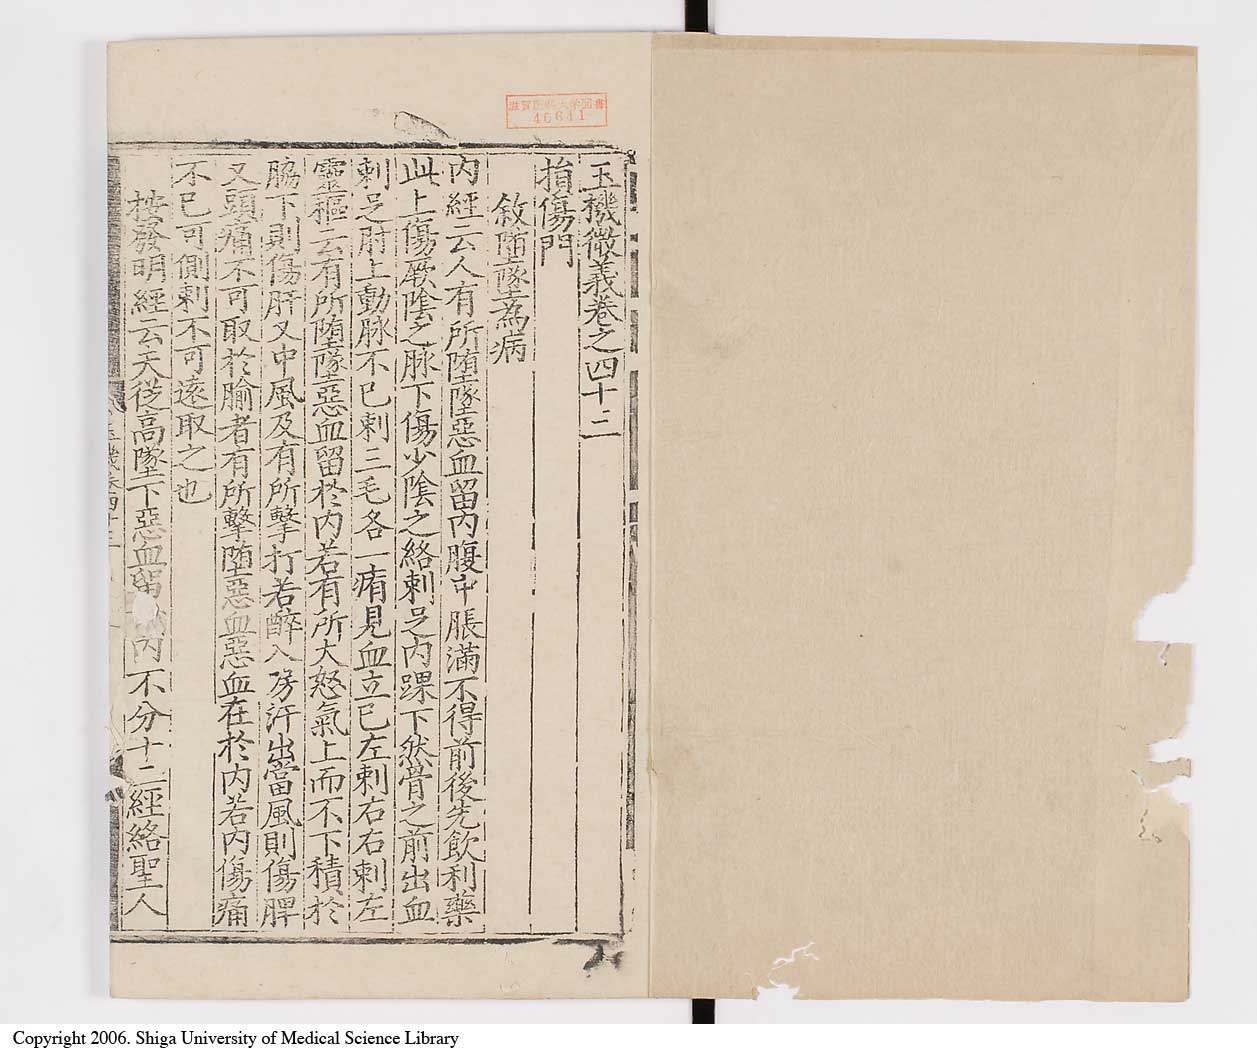 滋賀医科大学図書
46641
玉機微義卷之四十三
損傷門
叙墮墜為病
內經云人有所墮墜惡血留內腹中脹滿不得前後先飲利藥
此上傷厥陰之脉下傷少陰之絡刺足內踝下然骨之前出血
刺足跗上動脉不已刺三毛各一痏見血立已左刺右右刺左
靈樞云有所墮墜惡血留於內若有所大怒氣上而不下積於
脇下則傷肝又中風及有所擊打若醉入房汗出當風則傷脾
又頭痛不可取於腧者有所擊墮惡血惡血在於內若內傷痛
不已可側刺不可遠取之也
按發明經云夫從高墜下惡血留 內不分十二經絡聖人
玉機卷四十三
Copyright 2006. Shiga University of Medical Science Library